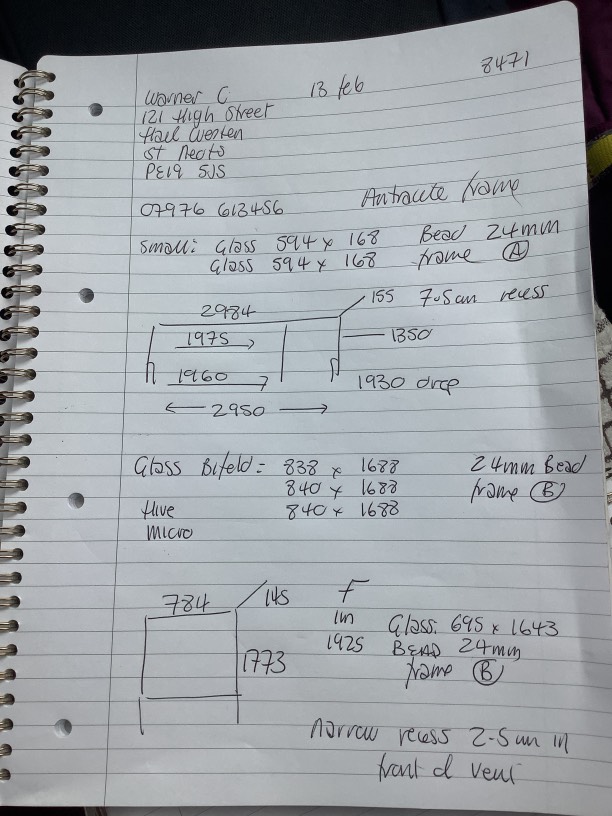 8471
Warner C 13 feb
121 High Street
Hail Weston
St Neots
PE19 5JS
07976 613456 Antracite frame
Small: Glass 594 x 168 Bead 24mm
Glass 594 x 168 frame A
2984 155 7.5cm recess
1975 1350
1960 1930 drop
2950
Glass Bifold = 838 x 1688 24mm Bead
840 x 1688 frame B
Hive 840 x 1688
Micro
784 145 F
1m Glass: 695 x 1643
1925 BEAD 24mm
1773 frame B
narrow recess 2-5cm in
front of vent